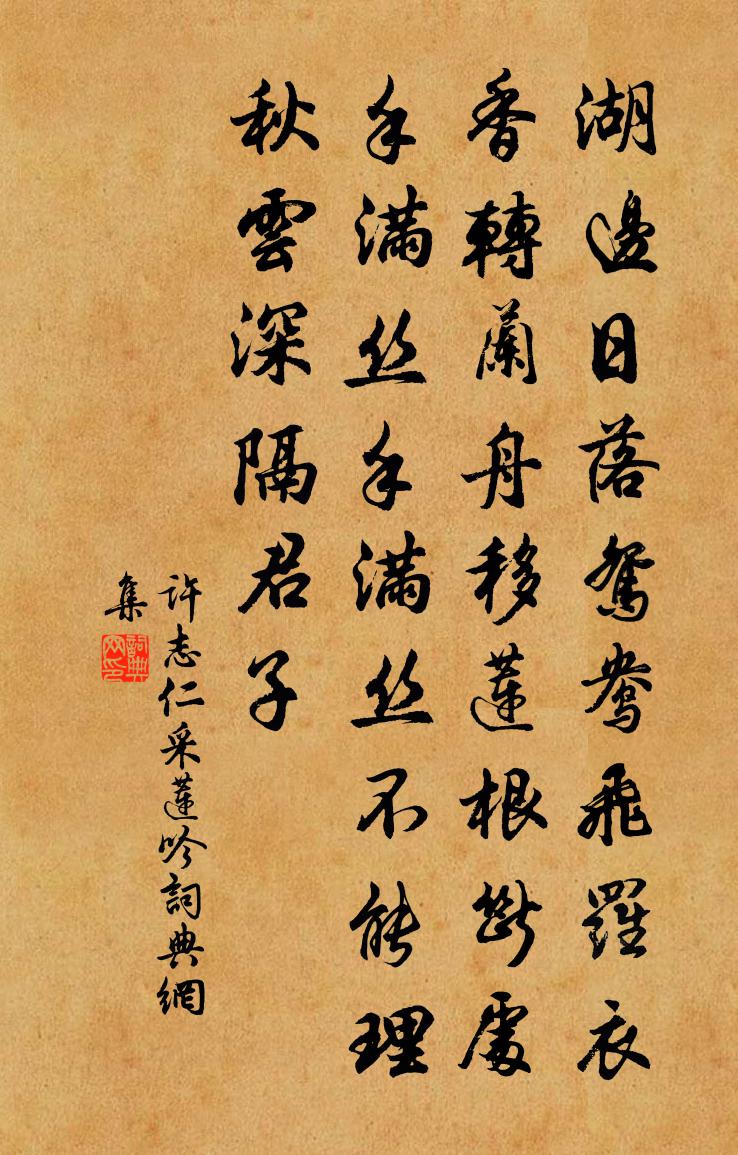 湖邊日落鴛鴦飛羅衣
香轉蘭舟移蓮根斷處
手滿丝手滿丝不能理
秋雲深隔君子
許志仁采蓮吟詞典網
集
詞典網印